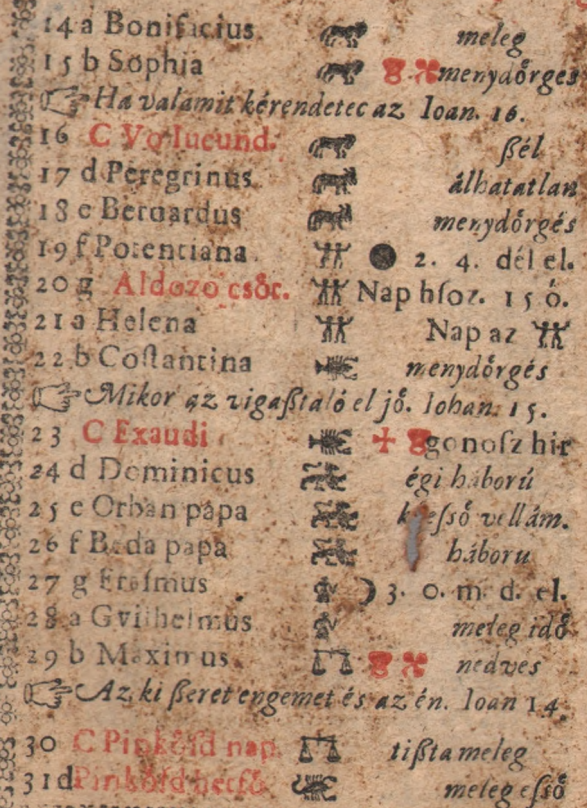 14 a Bonifacius meleg
15 b Sophia menydőrges
Ha valamit kérendetec az Ioan. 16.
16 C Vo Iucund. ßél
17 d Peregrinus álhatatlan
18 e Bernardus menydőrgés
19 f Potentiana 2. 4. dél el.
20 g Aldozo csőt. Nap hſoz. 15 ó.
21 a Helena Nap az
22 b Coſtantina menydőrgés
Mikor az vigaßtaló el jő. Iohan. 15.
23 C Exaudi gonoſz hir
24 d Dominicus égi háború
25 e Orban papa eſső villám.
26 f Beda papa háboru
27 g Eraſmus 3. 0. m. d. el.
28 a Gvilhelmus meleg idő
29 b Maximus nedves
Az ki ßeret engemet és az én. Ioan 14.
30 C Pinkőſd nap. tißta meleg
31 d Pinkőſd hetfő meleg eſső